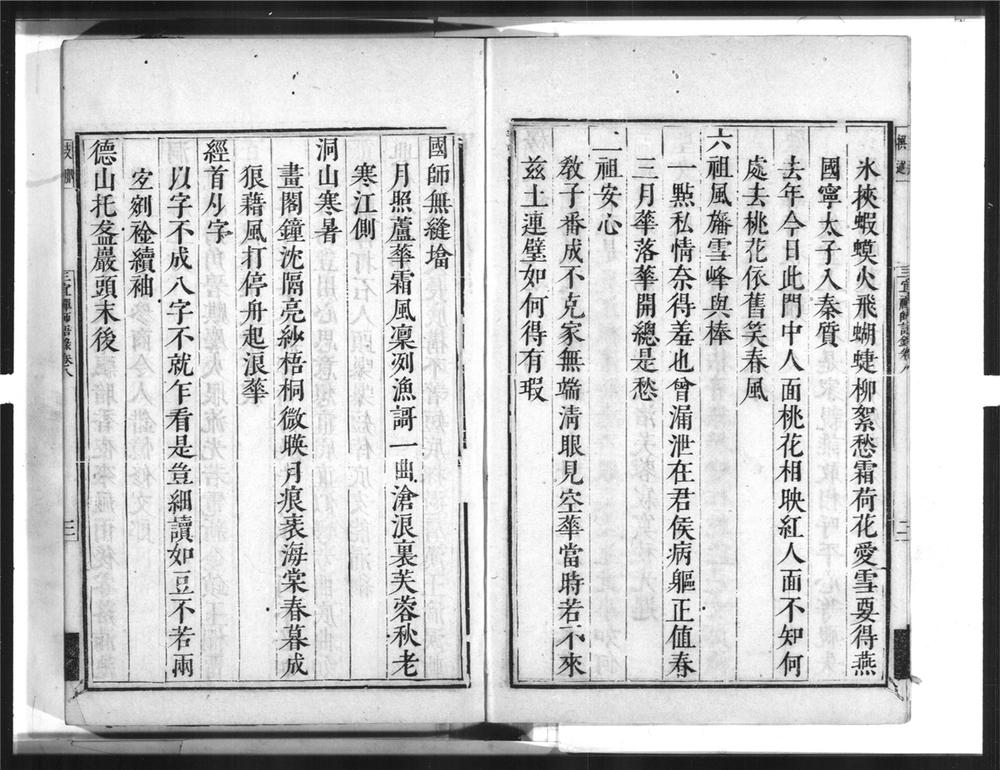 氷挾蝦蟆火飛蝴蜨柳絮愁霜荷花愛雪要得燕
國寧太子入秦質
去年今日此門中人面桃花相映紅人面不知何
處去桃花依舊笑春風
六祖風旛雪峰與棒
一㸃私情奈得羞也曾漏泄在君侯病軀正值春
三月華落華開總是愁
二祖安心
敎子番成不克家無端淸眼見空華當時若不來
兹土連璧如何得有瑕
三宜禪師語錄卷八
二
國師無縫墖
月照蘆華霜風凛冽漁謌一曲滄浪裏芙蓉秋老
寒江側
洞山寒暑
畫閣鐘沈隔亮紗梧桐微暎月痕衺海棠春暮成
狼藉風打停舟起浪華
經首㐅字
以字不成八字不就乍看是豈細讀如一豆不若兩
空剜襝續袖
德山托盋巖頭末後
三宜禪師語錄卷八
三